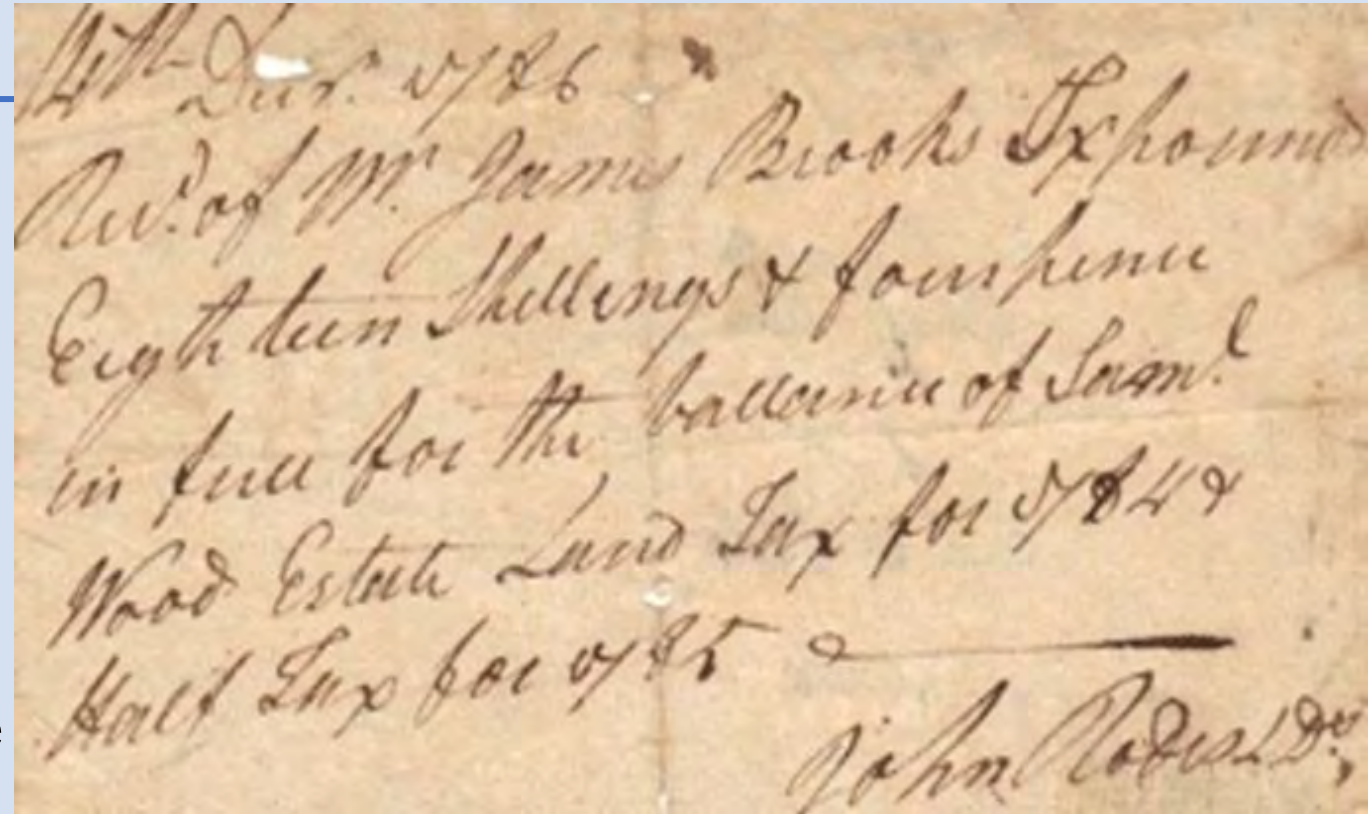 14th Decr. 1786
Recd. of Mr. James Brooks Six pound
Eighteen Shillings & fourpence
in full for the ballance of Saml
Wood Estate Land Tax for 1784 &
Half Tax for 1785
John Rodes